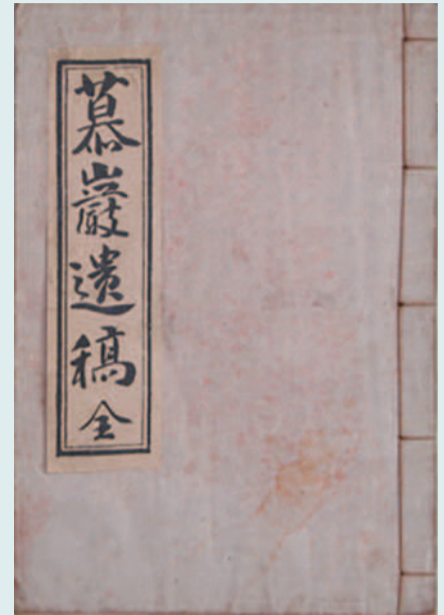 慕巖遺稿 全